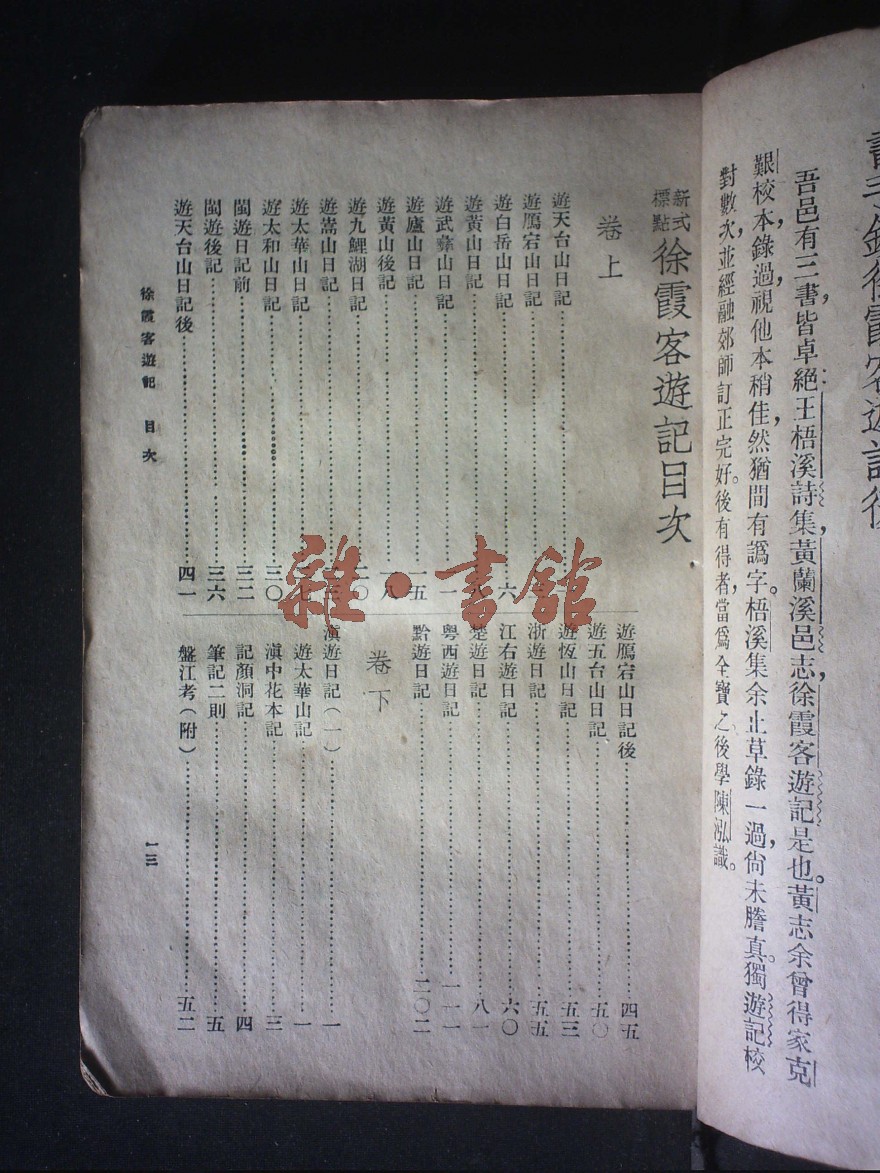 吾邑有三書，皆卓絕，王梧溪詩集，黃蘭溪邑志，徐霞客遊記是也。黃志余曾得家克
艱校本，錄過，視他本稍佳，然猶間有譌字。梧溪集余止草錄一過，尙未謄真。獨遊記校
對數次，並經融郊師訂正完好。後有得者，當爲全寶之。後學陳泓識。
新式標點 徐霞客遊記目次
卷上
遊天台山日記
遊鴈宕山日記
遊白岳山日記 六
遊黃山日記 八
遊武彝山日記
遊廬山日記 一五
遊黃山後記 一八
遊九鯉湖日記 二〇
遊嵩山日記
遊太華山日記
遊太和山日記 三〇
閩遊日記前 三二
閩遊後記 三六
遊天台山日記後 四一
遊鴈宕山日記後 四五
遊五台山日記 五〇
遊恆山日記 五三
浙遊日記 五五
江右遊日記 六〇
楚遊日記 八一
粵西遊日記 一一一
黔遊日記 二〇二
卷下
滇遊日記（一） 一
遊太華山記 一
滇中花木記 三
記顏洞記 四
筆記二則 五
盤江考（附） 五二
徐霞客遊記 目次
一三
雜·書館